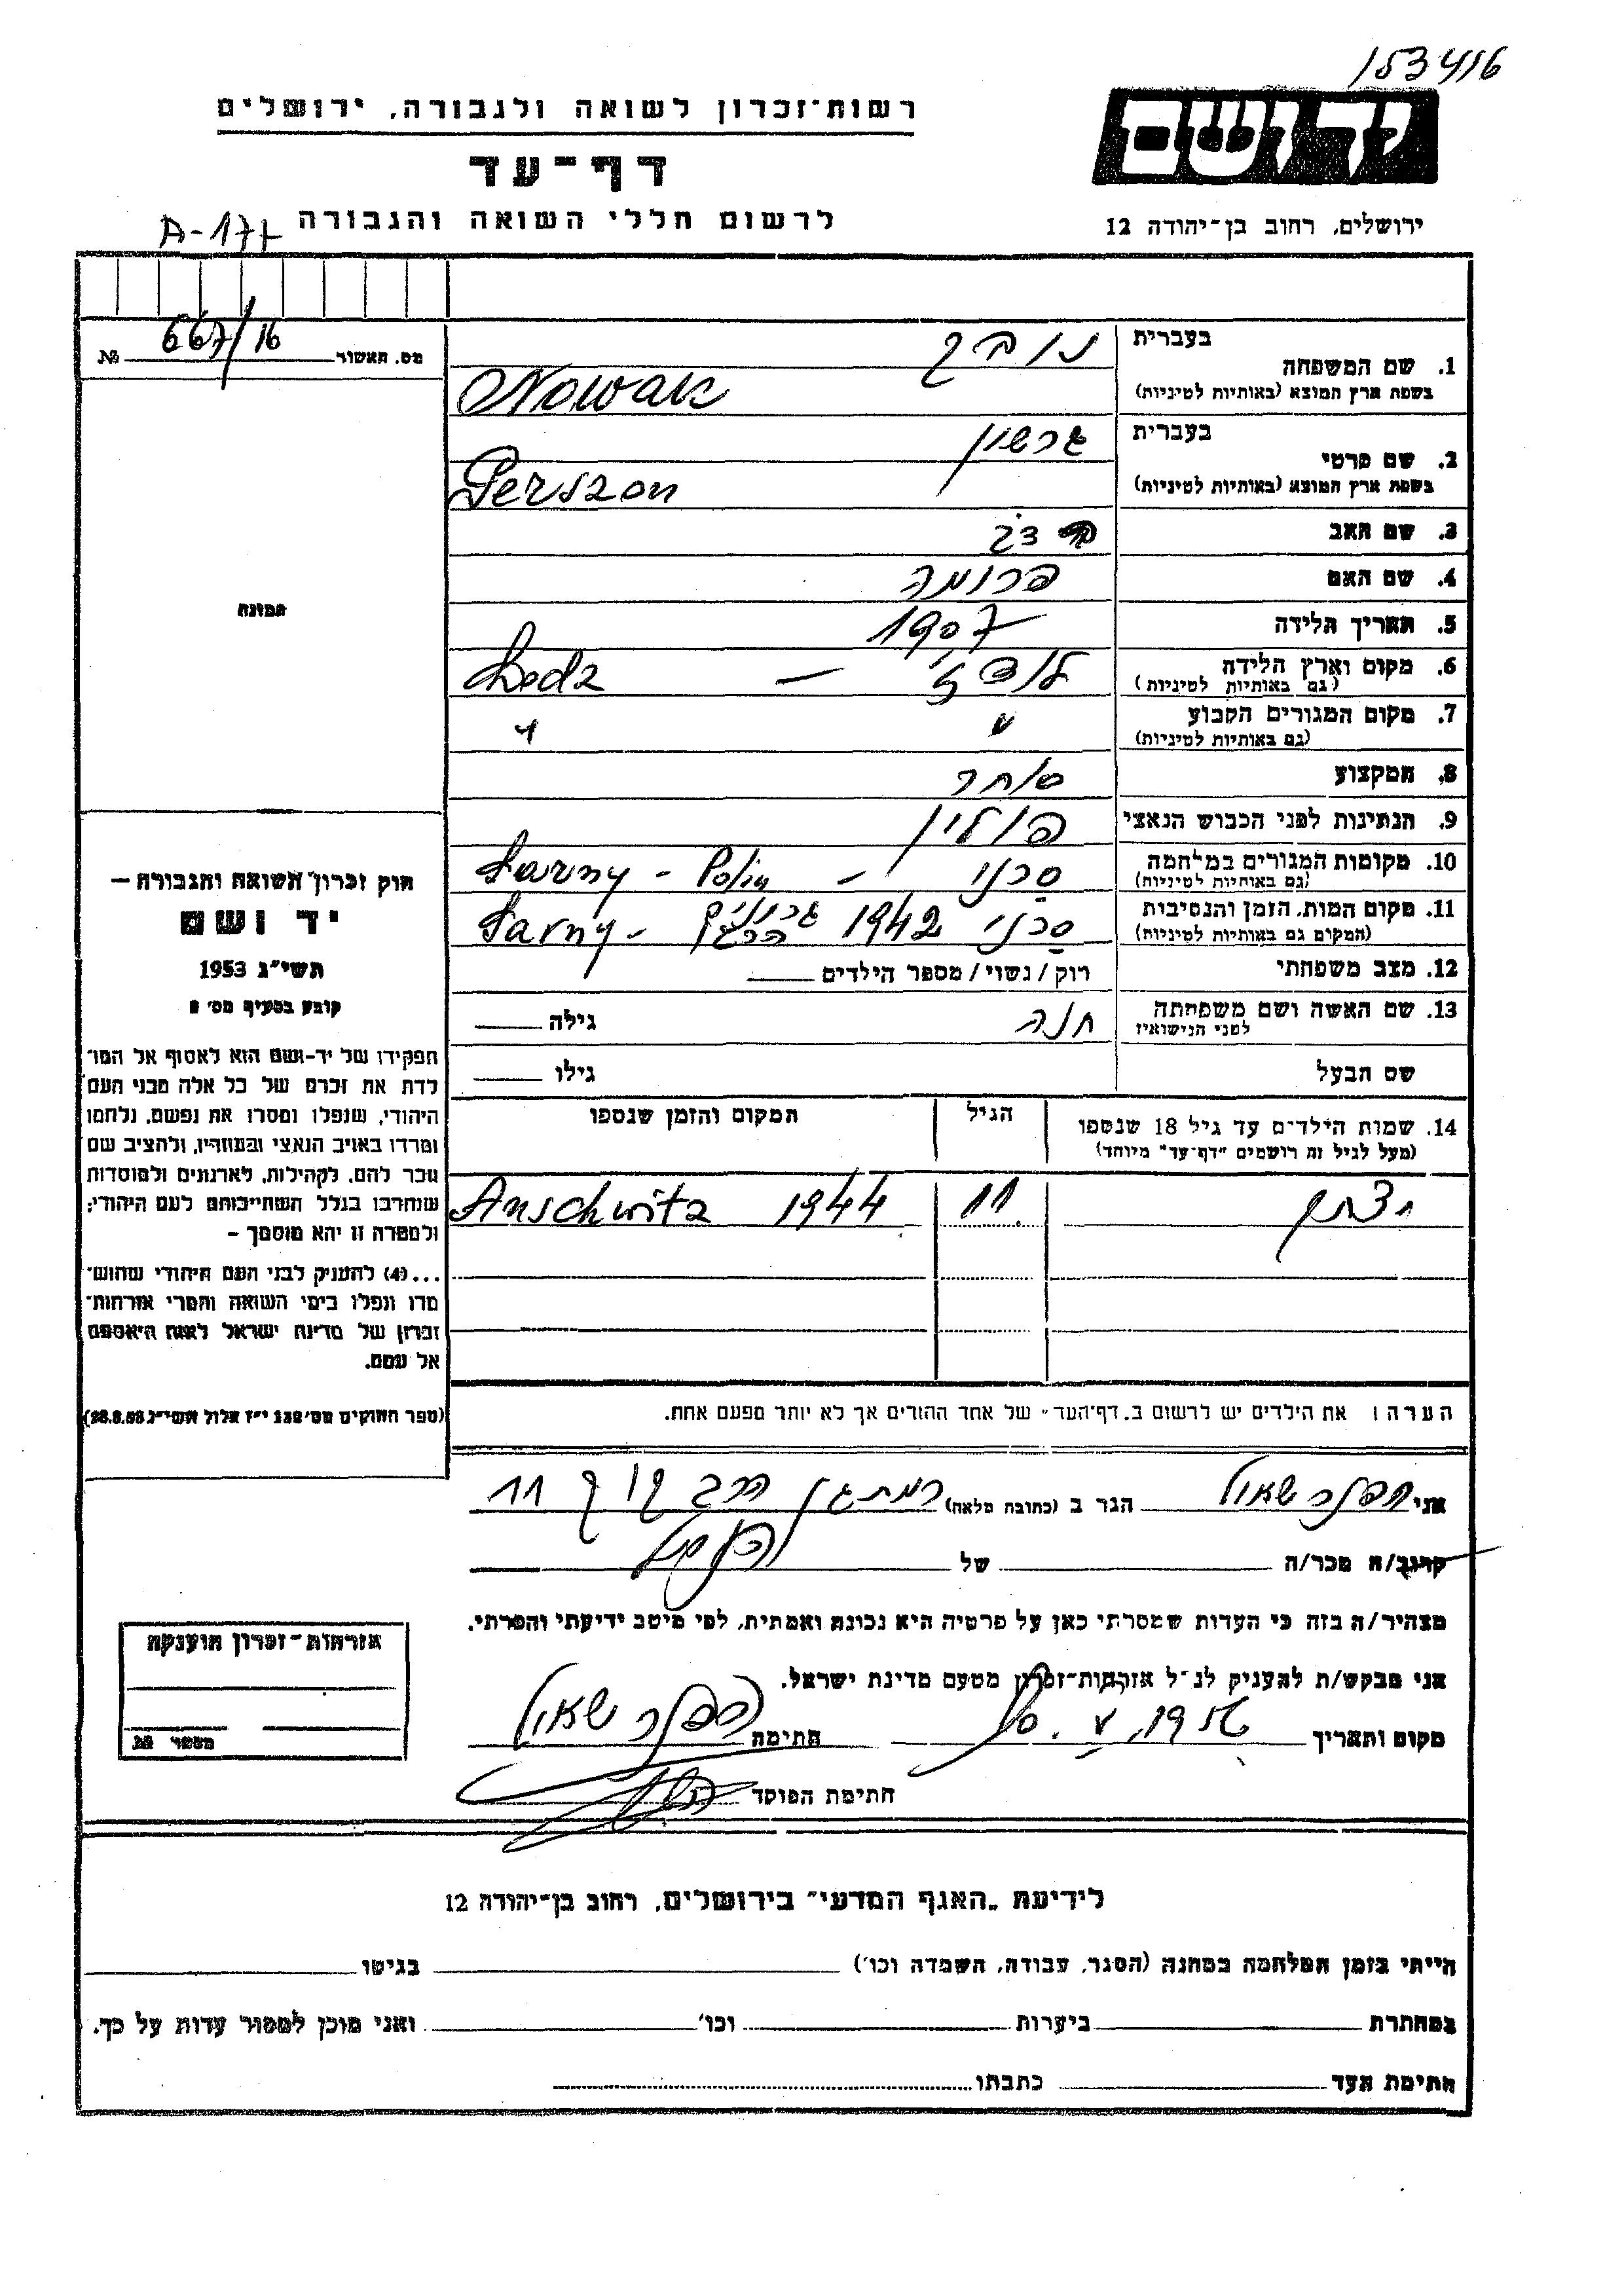 153416
רשות־זכרון לשואה ולגבורה, ירושלים
יד ושם
דף־עד
לרשום חללי השואה והגבורה
ירושלים, רחוב בן־יהודה 12
A-177
מס. תאשור 667/16 №
בעברית
1. שם המשפחה נובק
בשפת ארץ המוצא (באותיות לטיניות) Nowak
בעברית
2. שם פרטי גרשון
בשפת ארץ המוצא (באותיות לטיניות) Gerszon
3. שם האב
4. שם האם פרומה
5. תאריך הלידה 1907
6. מקום וארץ הלידה לודז' – Lodz
(גם באותיות לטיניות)
7. מקום המגורים הקבוע " "
(גם באותיות לטיניות)
8. המקצוע סוחר
9. הנתינות לפני הכבוש הנאצי פולין
10. מקומות המגורים במלחמה סרני – Sarny - Polin
(גם באותיות לטיניות)
11. מקום המות, הזמן והנסיבות סרני 1942 Sarny -
(המקום גם באותיות לטיניות)
12. מצב משפחתי רוק / נשוי / מספר הילדים
13. שם האשה ושם משפחתה חנה גילה
לפני הנישואין
שם הבעל גילו
14. שמות הילדים עד גיל 18 שנספו הגיל המקום והזמן שנספו
(מעל לגיל זה רושמים "דף־עד" מיוחד)
יצחק 11 Auschwitz 1944
תמונה
חוק זכרון השואה והגבורה —
יד ושם
תשי"ג 1953
קובע בסעיף מס'
תפקידו של יד-ושם הוא לאסוף אל המו־
לדת את זכרם של כל אלה מבני העם
היהודי, שנפלו ומסרו את נפשם, נלחמו
ומרדו באויב הנאצי ובעוזריו, ולהציב שם
וזכר להם, לקהילות, לארגונים ולמוסדות
שנחרבו בגלל השתייכותם לעם היהודי;
ולמטרה זו יהא מוסמך –
...(4) להעניק לבני העם היהודי שהוש־
מדו ונפלו בימי השואה והמרי אזרחות־
זכרון של מדינת ישראל לאות היאספם
אל עמם.
(ספר החוקים מס' 132 י"ז אלול תשי"ג 28.8.53)
הערה: את הילדים יש לרשום ב„דף־העד" של אחד ההורים אך לא יותר מפעם אחת.
אני שאול הגר ב (כתובת מלאה) רמת גן 11
קרוב/ה מכר/ה של
מצהיר/ה בזה כי העדות שמסרתי כאן על פרטיה היא נכונה ואמתית, לפי מיטב ידיעתי והכרתי.
אני מבקש/ת להעניק לנ"ל אזרחות־זכרון מטעם מדינת ישראל.
מקום ותאריך חתימה שאול
חתימת הפוקד
אזרחות־זכרון הוענקה
מספר №
לידיעת „האגף המדעי" בירושלים, רחוב בן־יהודה 12
הייתי בזמן המלחמה במחנה (הסגר, עבודה, השמדה וכו') בגיטו
במחתרת ביערות וכו' ואני מוכן למסור עדות על כך.
חתימת העד כתבתו